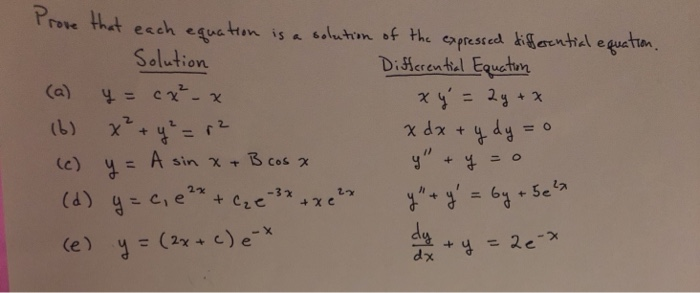 Prove that each equation is a solution of the expressed differential equation.
Solution Differential Equation
(a) y = cx² - x xy' = 2y + x
(b) x² + y² = r² x dx + y dy = 0
(c) y = A sin x + B cos x y'' + y = 0
(d) y = c₁e²ˣ + c₂e⁻³ˣ + xe²ˣ y'' + y' = 6y + 5e²ˣ
(e) y = (2x + c) e⁻ˣ dy/dx + y = 2e⁻ˣ